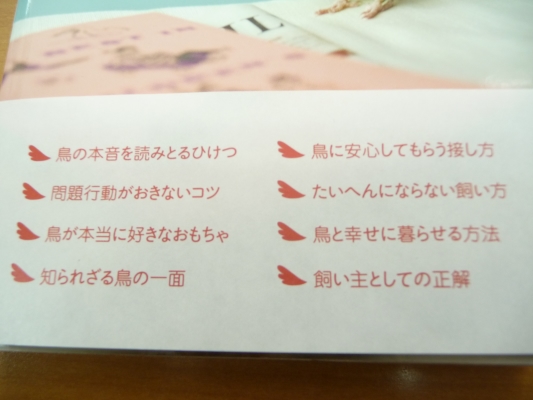 鳥の本音を読みとるひけつ
問題行動がおきないコツ
鳥が本当に好きなおもちゃ
知られざる鳥の一面
鳥に安心してもらう接し方
たいへんにならない飼い方
鳥と幸せに暮らせる方法
飼い主としての正解